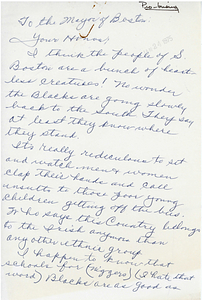 Pro-busing
To the Mayor of Boston
Your Honor;
I think the people of S.
Boston are a bunch of heart
less creatures! No wonder
the Blacks are going slowly
back to the South. They say
at least they know where
they stand.
Its really rediculous to sit
and watch men & women
clap their hands and call
insults to those poor young
children getting off the bus.
Who says this Country belongs
to the Irish anymore than
any other ethnic group.
I happen to know that
schools for (niggers) (I hate that
word) Blacks are as good as